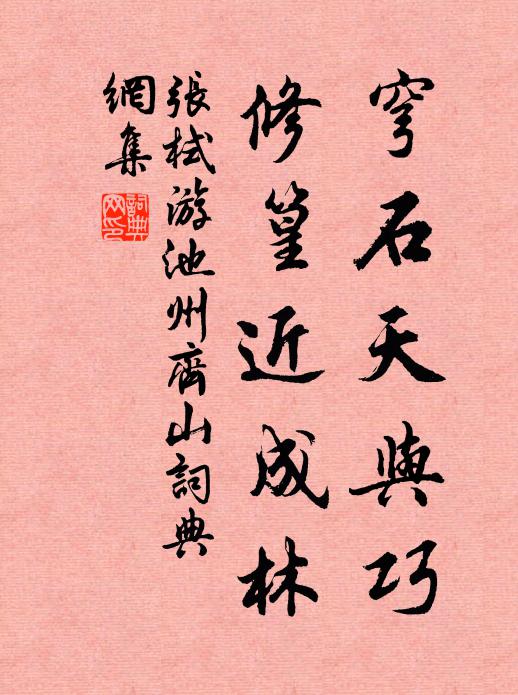 穹石天與巧
修篁近成林
張栻游池州齊山詞典
網集
詞典
网印